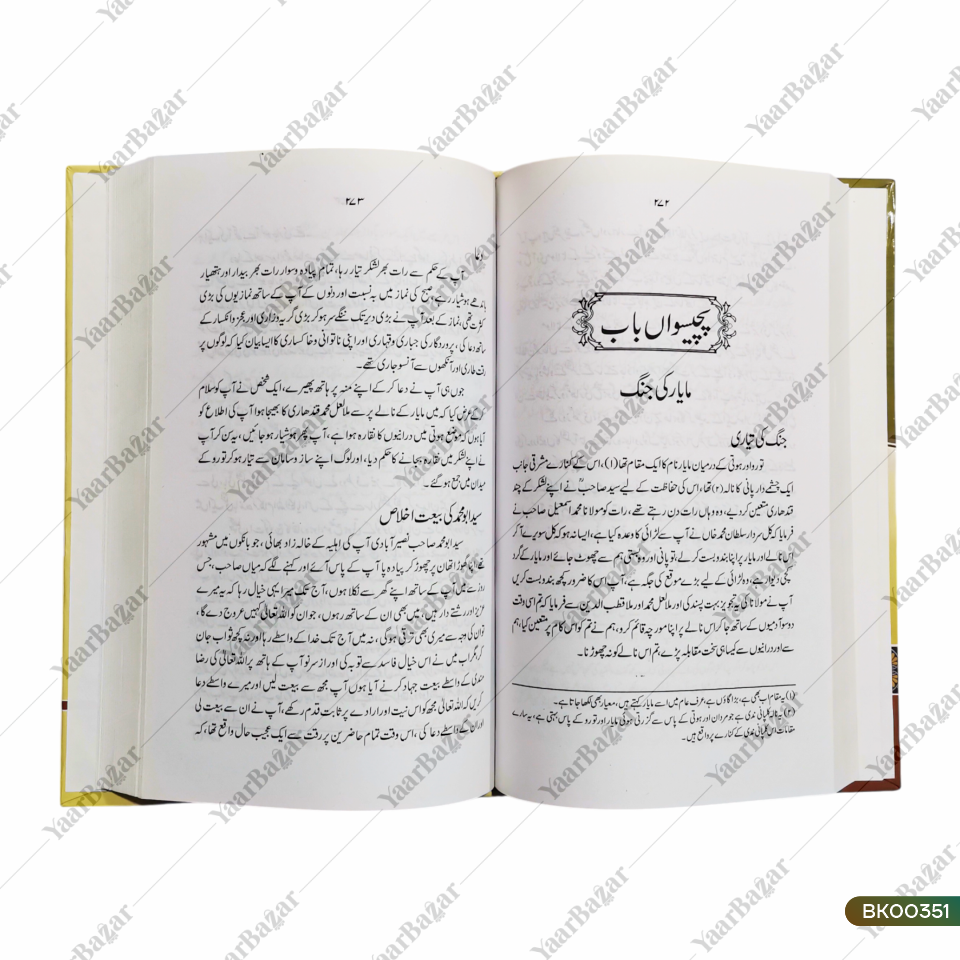 ۲۷۲
پچیسواں باب
مایار کی جنگ
جنگ کی تیاری
تورو اور ہوتی کے درمیان مایار نام کا ایک مقام تھا (۱)، اس کے کنارے مشرقی جانب
ایک چشمے دار پانی کا نالہ (۲) تھا، اس کی حفاظت کے لیے سید صاحبؒ نے اپنے لشکر کے چند
قندھاری متعین کر دیے، وہ وہاں رات دن رہتے تھے، رات کو مولانا محمد اسمعیل صاحب نے
فرمایا کہ کل سردار سلطان محمد خاں نے آپ سے لڑائی کا وعدہ کیا ہے، ایسا نہ ہو کہ کل سویرے آ کر
اس نالے اور مایار پر اپنا بندوبست کر لے، تو پانی اور وہ بستی ہم سے چھوٹ جائے اور مایار کے گرد
کچی دیوار ہے، وہ لڑائی کے لیے بڑے موقع کی جگہ ہے، آپ اس کا ضرور کچھ بندوبست کریں
آپ نے مولانا کی یہ تجویز بہت پسند کی اور ملا لعل محمد اور ملا قطب الدین سے فرمایا کہ تم اسی وقت
دو سو آدمیوں کے ساتھ جا کر اس نالے پر اپنا مورچہ قائم کرو، ہم نے تم کو اس کام پر متعین کیا، ہم
سے اور درانیوں سے کیسا ہی سخت مقابلہ پڑے، تم اس نالے کو نہ چھوڑنا۔
(۱) یہ مقام اب بھی ہے، بڑا گاؤں ہے، عرف عام میں اسے مایار کہتے ہیں، معیار بھی لکھا جاتا ہے۔
(۲) یہ نالہ کلپانی ندی ہے جو مردان اور ہوتی کے پاس سے گزرتی ہوئی مایار اور تورو کے پاس بہتی ہے، یہ سارے
مقامات اس کلپانی ندی کے کنارے پر واقع ہیں۔
۲۷۳
دعا
آپ کے حکم سے رات بھر لشکر تیار رہا، تمام پیادہ و سوار رات بھر بیدار اور ہتھیار
باندھے ہوشیار رہے، صبح کی نماز میں بہ نسبت اور دنوں کے آپ کے ساتھ نمازیوں کی بڑی
کثرت تھی، نماز کے بعد آپ نے بڑی دیر تک ننگے سر ہو کر بڑی گریہ و زاری اور عجز و انکسار کے
ساتھ دعا کی، پروردگار کی جباری و قہاری اور اپنی ناتوانی و خاکساری کا ایسا بیان کیا کہ لوگوں پر
رقت طاری اور آنکھوں سے آنسو جاری تھے۔
جوں ہی آپ نے دعا کر کے اپنے منہ پر ہاتھ پھیرے، ایک شخص نے آپ کو سلام
کر کے عرض کیا کہ میں مایار کے نالے پر سے ملا لعل محمد قندھاری کا بھیجا ہوا آپ کی اطلاع کو
آیا ہوں کہ موضع ہوتی میں درانیوں کا نقارہ ہوا ہے، آپ پھر ہوشیار ہو جائیں، یہ سن کر آپ
نے اپنے لشکر میں نقارہ بجانے کا حکم دیا، اور لوگ اپنے ساز و سامان سے تیار ہو کر تورو کے
میدان میں جمع ہو گئے۔
سید ابو محمد کی بیعت اخلاص
سید ابو محمد صاحب نصیر آبادی آپ کی اہلیہ کے خالہ زاد بھائی، جو بانکوں میں مشہور
تھے اپنا گھوڑا تھان پر چھوڑ کر پیادہ پا آپ کے پاس آئے اور کہنے لگے کہ میاں صاحب، جس
روز سے میں آپ کے ساتھ اپنے گھر سے نکلا ہوں، آج تک میرا یہی خیال رہا کہ یہ میرے
عزیز اور رشتے دار ہیں، میں بھی ان کے ساتھ رہوں، جو ان کو اللہ تعالیٰ کہیں عروج دے گا،
تو ان کی وجہ سے میری بھی ترقی ہوگی، نہ میں آج تک خدا کے واسطے رہا اور نہ کچھ ثواب جان
کر، مگر اب میں نے اس خیال فاسد سے توبہ کی اور از سر نو آپ کے ہاتھ پر اللہ تعالیٰ کی رضا
مندی کے واسطے بیعت جہاد کرنے آیا ہوں آپ مجھ سے بیعت لیں اور میرے واسطے دعا
کریں کہ اللہ تعالیٰ مجھ کو اس نیت اور ارادے پر ثابت قدم رکھے، آپ نے ان سے بیعت لی
اور ان کے واسطے دعا کی، اس وقت تمام حاضرین پر رقت سے ایک عجیب حال واقع تھا، کہ
YaarBazar
BK00351